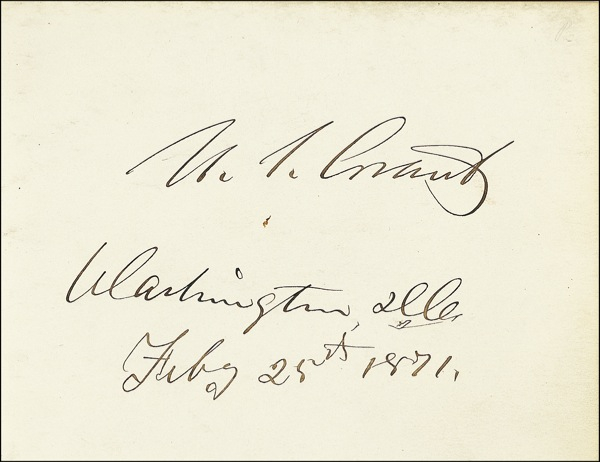 U. S. Grant
Washington, D.C.
Feby 25th 1871.